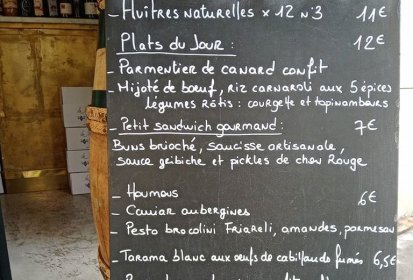 - Huîtres naturelles x 12 n°3 11€
Plats du Jour : 12€
- Parmentier de canard confit
- Mijoté de bœuf, riz carnaroli aux 5 épices
légumes rôtis : courgette et topinambours
- Petit sandwich gourmand : 7€
Buns brioché, saucisse artisanale,
sauce gribiche et pickles de chou Rouge
- Houmous 6€
- Caviar aubergines
- Pesto brocolini Friareli, amandes, parmesan
- Tarama blanc aux œufs de cabillaud fumés 6,5€